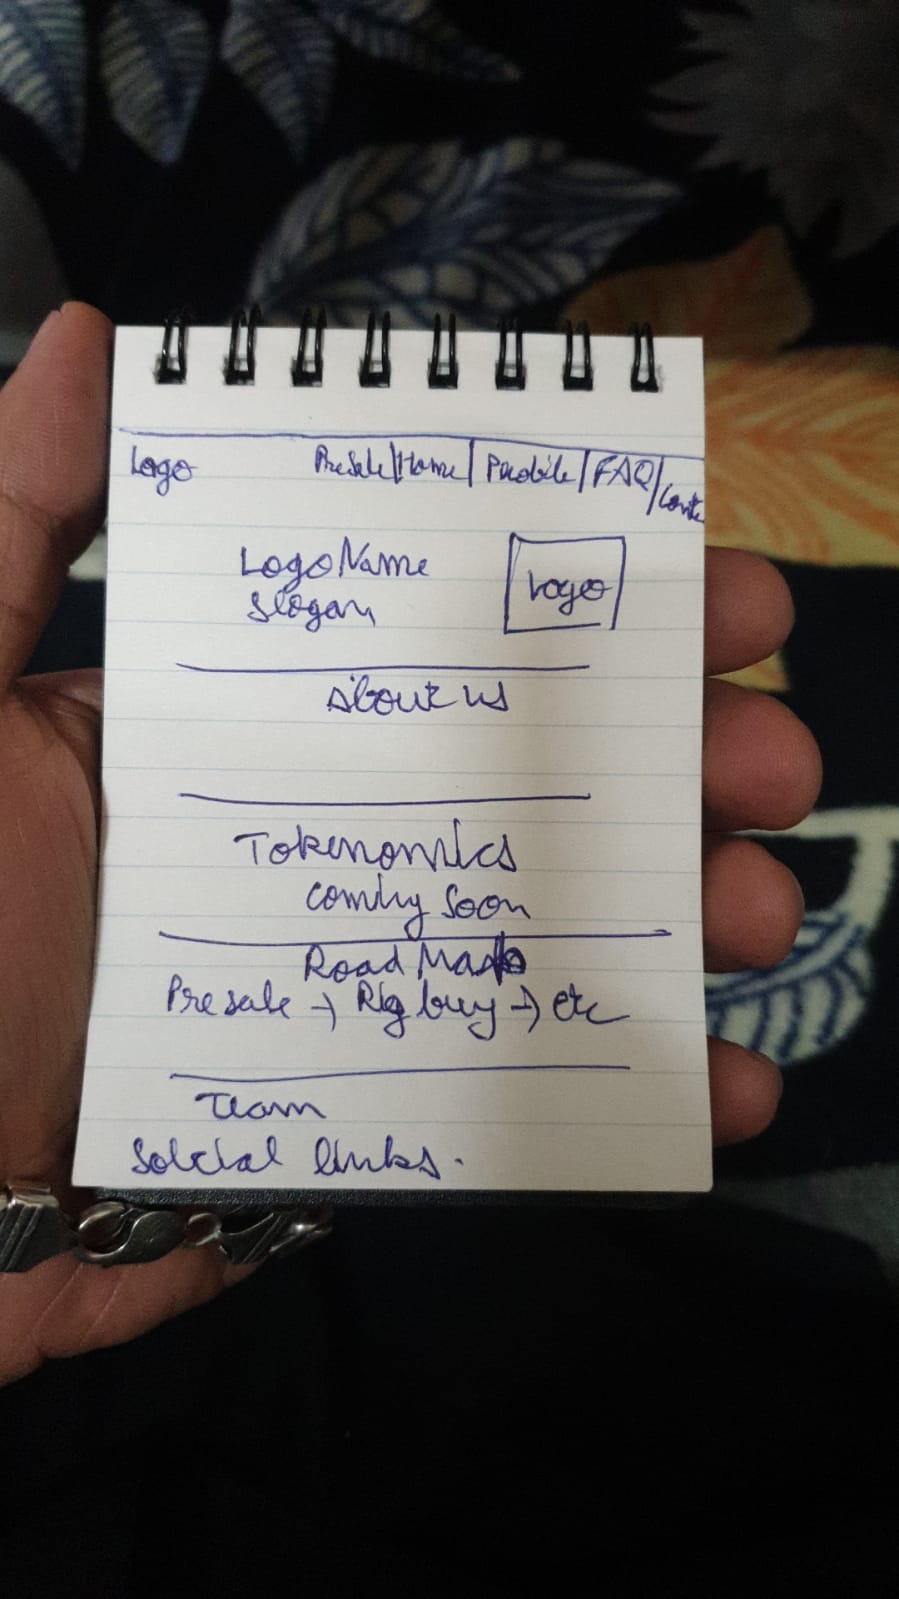 Logo Presale | Home | | FAQ |
Logo Name
Slogan
Logo
About us
Tokenomics
Coming Soon
Road Map
Presale → Rig buy → etc
Team
Solcial links.